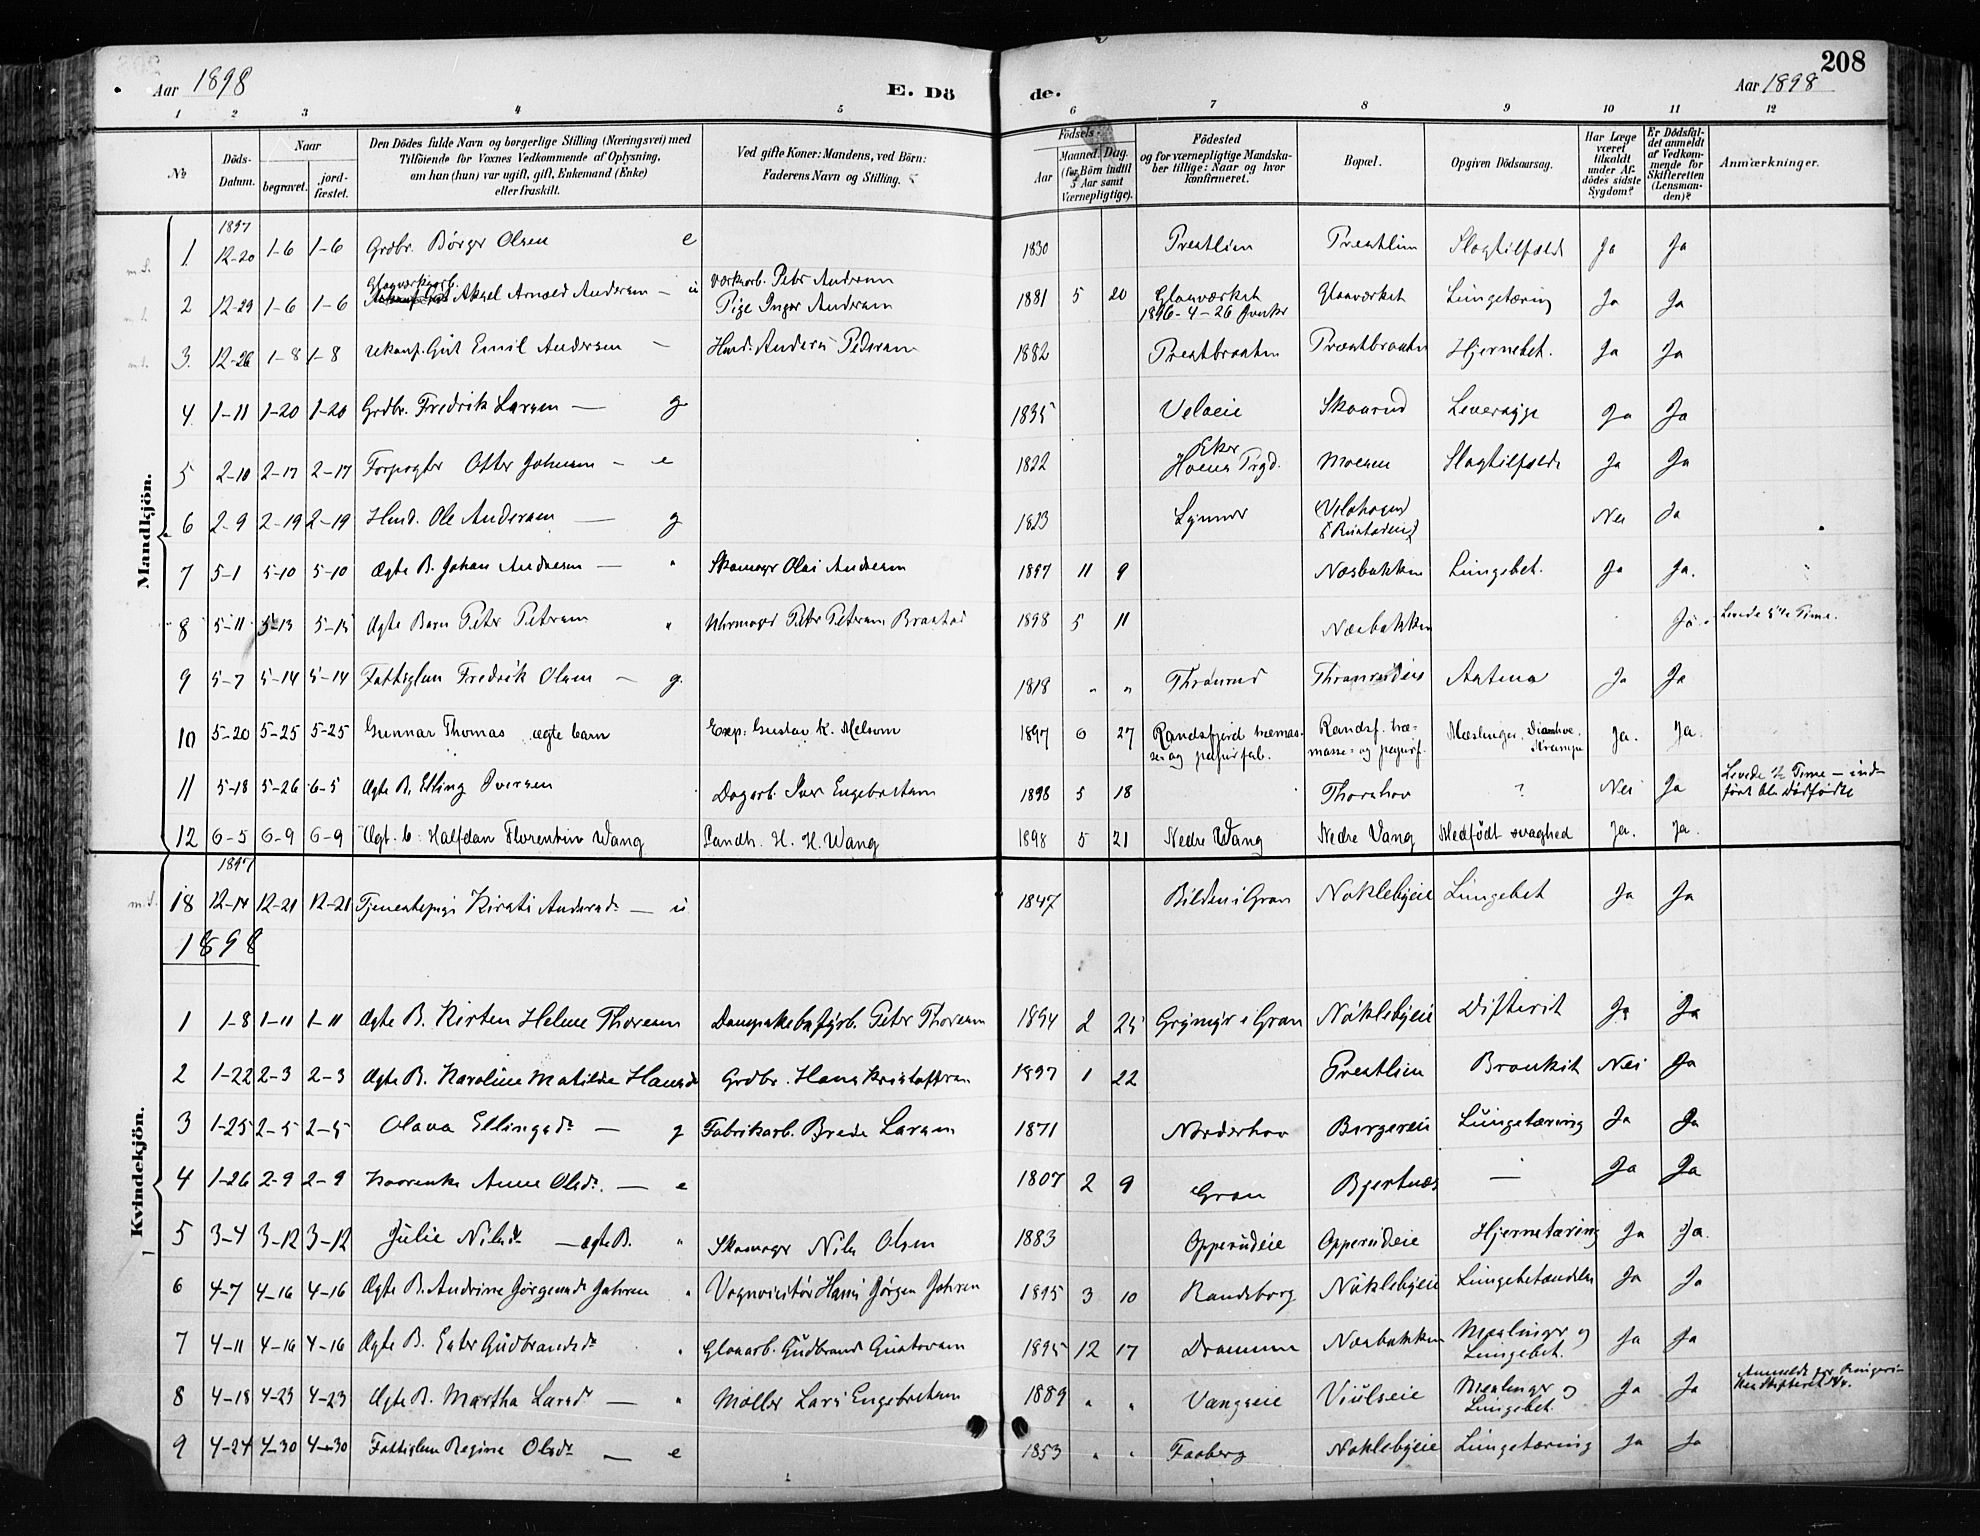 208
Aar 1898 E. Dö de. Aar 1898
1 2 3 4 5 6 7 8 9 10 11 12
№ Döds-Datum. Naar begravet. jord-fæstet. Den Dödes fulde Navn og borgerlige Stilling (Næringsvei) med Tilföiende for Voxnes Vedkommende af Oplysning, om han (hun) var ugift, gift, Enkemand (Enke) eller fraskilt. Ved gifte Koner: Mandens, ved Börn: Faderens Navn og Stilling. Födsels- Aar Maaned. Dag. (for Börn indtil 5 Aar samt Værnepligtige). Födested og for værnepligtige Mandskaber tillige: Naar og hvor konfirmeret. Bopæl. Opgiven Dödsaarsag. Har Læge været tilkaldt under Afdödes sidste Sygdom? Er Dödsfaldet anmeldt af Vedkommende for Skifteretten (Lensmanden)? Anmærkninger.
Mandkjön.
1897
1. 12-20 1-6 1-6 Grdbr. Börger Olsen e 1830 Prestlien Prestlien Slagtilfælde Ja Ja
2 12-29 1-6 1-6 Glasværksarb. Aksel Arnold Andersen - u Værksarb. Peter Andersen Pige Inger Andersen 1881 5 20 Glasværket 1896-4-26 Jevnker Glasværket Lungetæring Ja Ja
3. 12-26 1-8 1-8 Ukonf. Gut Emil Andersen - Hmd. Anders Pedersen 1882 Prestbraaten Præstbraaten Hjernebet. Ja Ja
4 1-11 1-20 1-20 Grdbr. Fredrik Larsen - g 1835 Velseie Skaarud Leversyge Ja Ja
5 2-10 2-17 2-17 Forpagter Otter Johnsen - e 1822 Eker Hoens Prgd. Moesen Slagtilfælde Ja Ja
6 2-9 2-19 2-19 Hmd. Ole Andersen - g 1823 Lynner Nei Ja
7 5-1 5-10 5-10 Ægte B. Johan Andersen - " Skomager Olai Andersen 1897 11 9 Næsbakken Lungebet. Ja Ja.
8 5-11 5-13 5-13 Ægte Barn Peter Petersen " Uhrmager Peter Petersen Braatad 1898 5 11 Næsbakken Ja. Levede 5 Time.
9 5-7 5-14 5-14 Fattiglem Fredrik Olsen - g. 1818 " " Thronrud Thronrudeie Astma Ja Ja
10 5-20 5-25 5-25 Gunnar Thomas ægte barn Exp: Gustav K. Melsom 1897 6 27 Randsfjord træmasse og papirfab. Randsf. træmasse- og papirf. Mæslinger, Diarrhoe, Krampe Ja. Ja.
11 5-18 5-26 6-5 Ægte B. Elling Iversen Dagarb. Iver Engebretsen 1898 5 18 Thorshov ? Nei Ja Levede ½ Time - indført bl. Dødfødte
12 6-5 6-9 6-9 Ægt. b. Halfdan Florentin Wang Landh. H. H. Wang 1898 5 21 Nedre Wang Nedre Vang Medfödt svaghed Ja. Ja.
Kvindekjön.
1897
18 12-14 12-21 12-21 Tjenestepige Kirsti Andersdr - u 1847 Bilden i Gran Noklebyeie Lungebet Ja Ja
1898
1 1-8 1-11 1-11 Ægte B. Kirsten Helene Thoresen Dampskibsfyrb. Peter Thoresen 1894 2 25 Grymyr i Gran Nöklebyeie Difterit Ja Ja
2 1-22 2-3 2-3 Ægte B. Karoline Matilde Hansdr Grdbr. Hans Kristoffersen 1897 1 22 Prestlien Bronkit Nei Ja
3 1-25 2-5 2-5 Olava Ellingsdr - g Fabrikarb. Brede Larsen 1871 Norderhov Bergereie Lungetæring Ja Ja
4 1-26 2-9 2-9 Anne Olsdr. - e 1807 2 9 Gran Bjertnæs - Ja Ja
5 3-4 3-12 3-12 Julie Nilsdr - ægte B. " Skomager Nils Olsen 1883 Opperudeie Opperudeie Hjernetæring Ja Ja.
6 4-7 4-16 4-16 Ægte B. Andrine Jørgensdr Jahren " Vognvisitør Hans Jørgen Jahren 1895 3 10 Randsborg Nöklebyeie Lungebetændelse Ja Ja
7 4-11 4-16 4-16 Ægte B. Ester Gudbrandsdr " Glasarb. Gudbrand Gustavsen 1895 12 17 Drammen Næsbakken Mæslinger og Lungebet. Ja Ja
8 4-18 4-23 4-23 Ægte B. Martha Larsdr - " Møller Lars Engebretsen 1889 " " Vangseie Viulseie Mæslinger og Lungebet. Ja Ja
9 4-24 4-30 4-30 Fattiglem Regine Olsdr - e 1853 " " Faaberg Noklebyeie Lungetæring Ja Ja